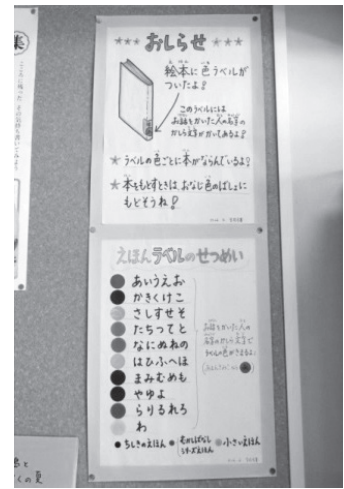 ★★★ おしらせ ★★★
絵本に色ラベルが
ついたよ!
このラベルには
お話をかいた人の名字の
かしら文字がかいてあるよ!
★ ラベルの色ごとに本がならんでいるよ!
★ 本をもどすときは、おなじ色のばしょに
もどそうね!
えほんラベルのせつめい
あいうえお
かきくけこ
さしすせそ
たちつてと
なにぬねの
はひふへほ
まみむめも
やゆよ
らりるれろ
わ
お話をかいた人の
名字のかしら文字で
ラベルの色がきまるよ!
●ちしきのえほん ● ●小さいえほん